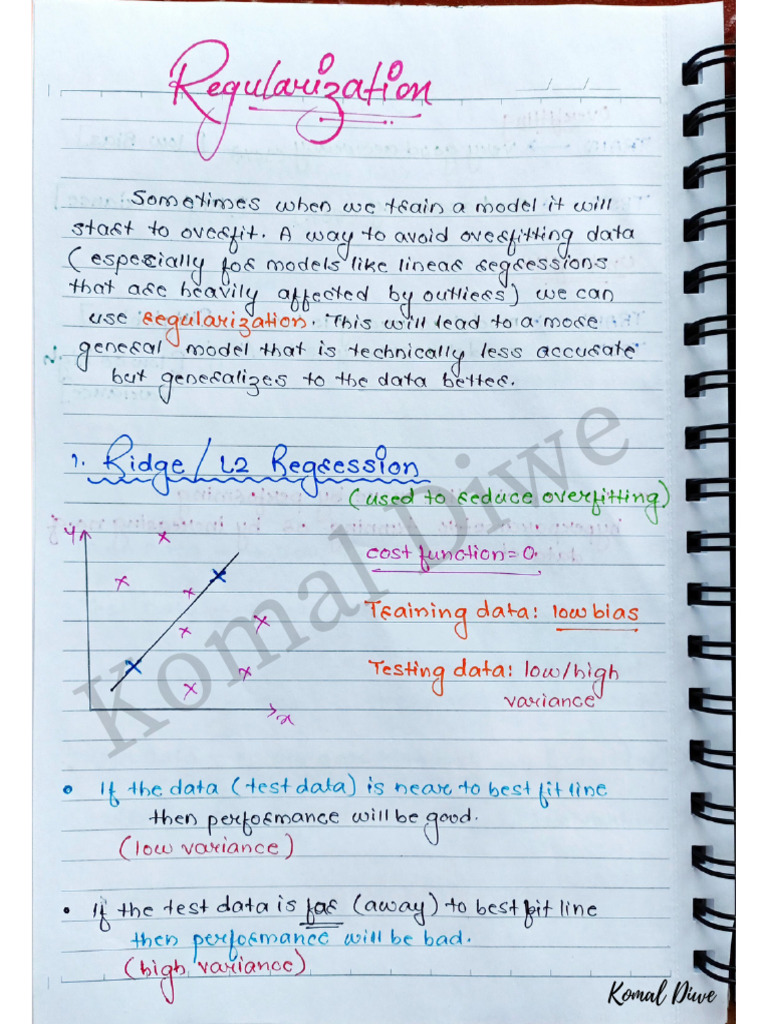 Regularization
Sometimes when we train a model it will
start to overfit. A way to avoid overfitting data
(especially for models like linear regressions
that are heavily affected by outliers) we can
use regularization. This will lead to a more
general model that is technically less accurate
but generalizes to the data better.
1. Ridge / L2 Regression
(used to reduce overfitting)
y
cost function = 0.
Training data: low bias
Testing data: low/high
variance
x
• If the data (test data) is near to best fit line
then performance will be good.
(low variance)
• If the test data is far (away) to best fit line
then performance will be bad.
(high variance)
Komal Diwe
Komal Diwe